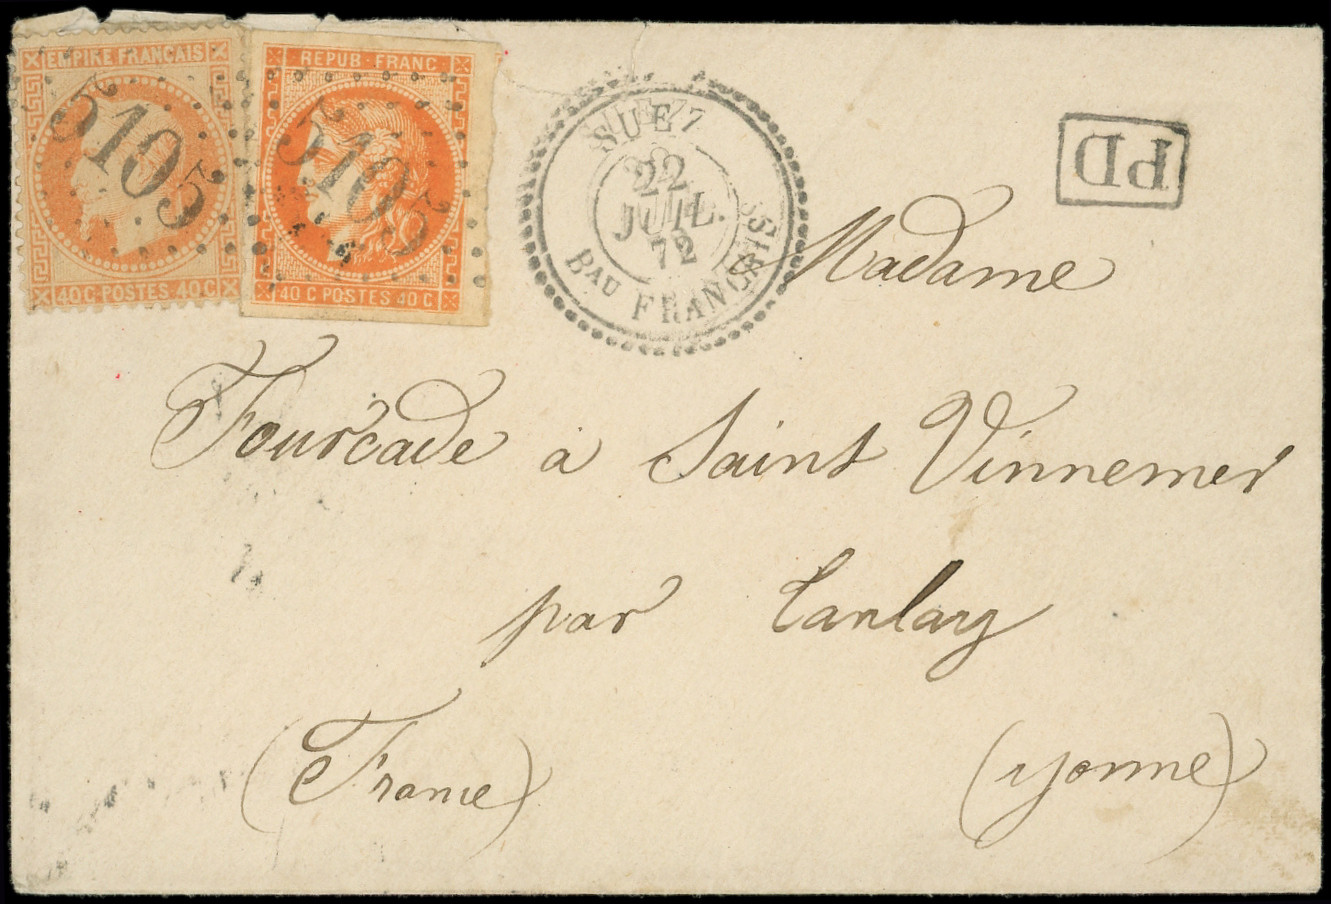 EMPIRE FRANÇAIS
40 C POSTES 40 C
5105
REPUB·FRANC
40 C POSTES 40 C
5105
SUEZ
22
JUIL.
72
BAU FRANÇAIS
PD
Madame
Fourcade à Saint Vinnemer
par Tanlay
(France)
(Yonne)